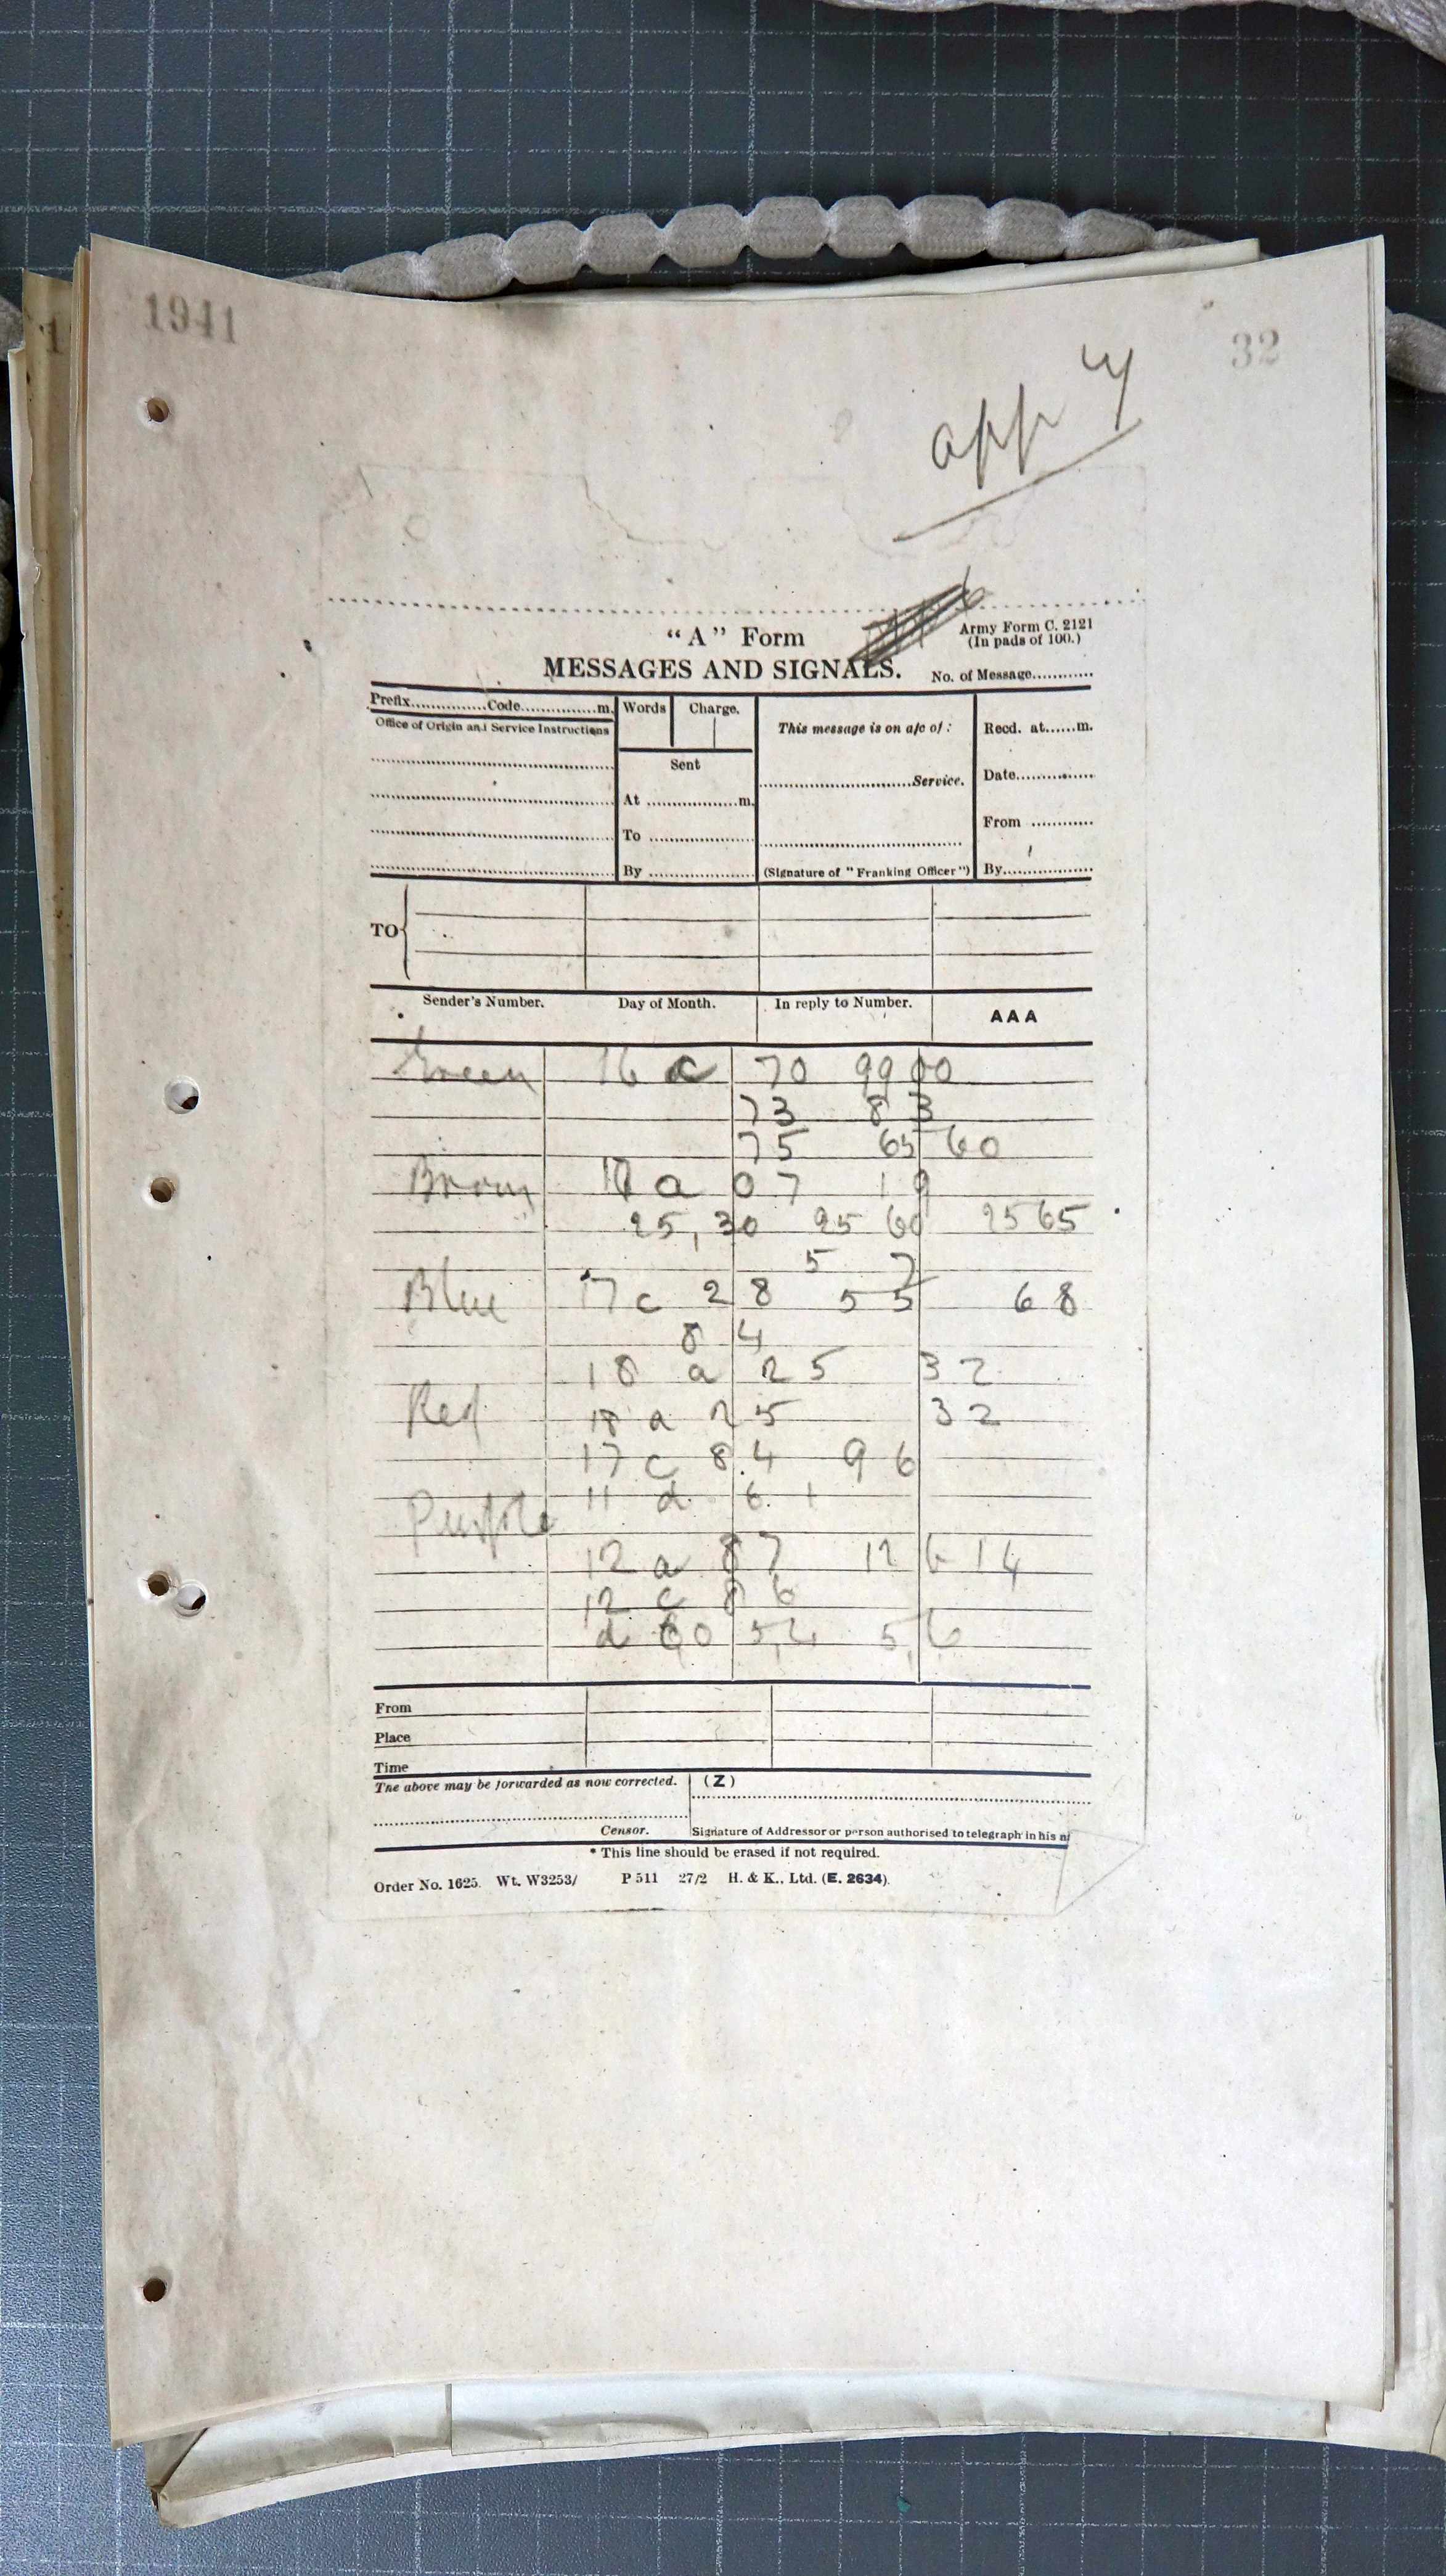 1941
32
app 4
"A" Form
Army Form C. 2121
(In pads of 100.)
MESSAGES AND SIGNALS.
No. of Message............
Prefix...............Code...............m.
Words
Charge.
This message is on a/c of :
Recd. at......m.
Office of Origin and Service Instructions
Sent
...............................Service.
Date...............
At ..................m.
From ............
To .....................
By .....................
(Signature of "Franking Officer")
By..................
TO
Sender's Number.
Day of Month.
In reply to Number.
AAA
Green 16 c 70 99 00
73 83
75 65 60
Brown a 07 19
25,30 25 60 25 65
5 7
Blue 17 c 28 55 68
84
18 a 25 32
Red 18 a 25 32
17 c 84 96
Purple 11 d 6 1
12 a 87 12 6 14
12 c 8 6
d 60 5,4 5,6
From
Place
Time
The above may be forwarded as now corrected.
(Z)
Censor.
Signature of Addressor or person authorised to telegraph in his
* This line should be erased if not required.
Order No. 1625. Wt. W3253/ P 511 27/2 H. & K., Ltd. (E. 2634).